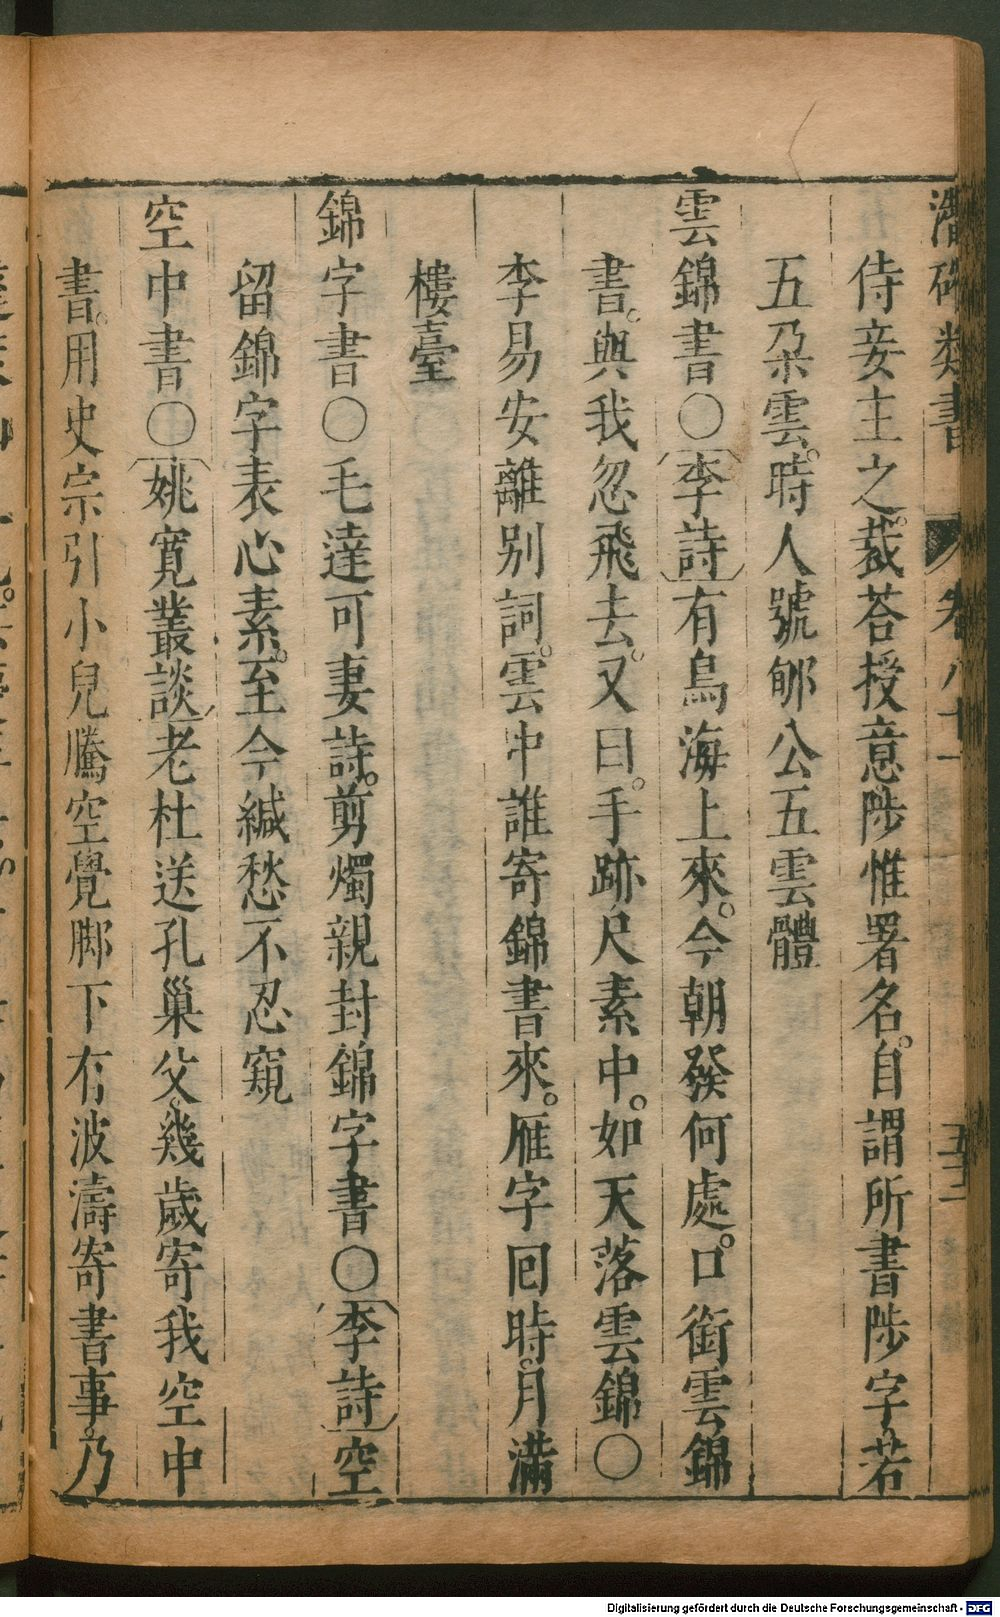 潛確類書 卷八十一 五十二
侍妾主之。裁荅授意陟惟署名。自謂所書陟字若
五朵雲。時人號郇公五雲體
雲錦書〇李詩有鳥海上來。今朝發何處。口銜雲錦
書。與我忽飛去。又曰。手跡尺素中。如天落雲錦〇
李易安離別詞。雲中誰寄錦書來。雁字回時。月滿
樓臺
錦字書〇毛達可妻詩。剪燭親封錦字書〇李詩空
留錦字表心素。至今緘愁不忍窺
空中書〇姚寬叢談老杜送孔巢父。幾歲寄我空中
書。用史宗引小兒騰空覺脚下有波濤寄書事。乃
Digitalisierung gefördert durch die Deutsche Forschungsgemeinschaft - DFG